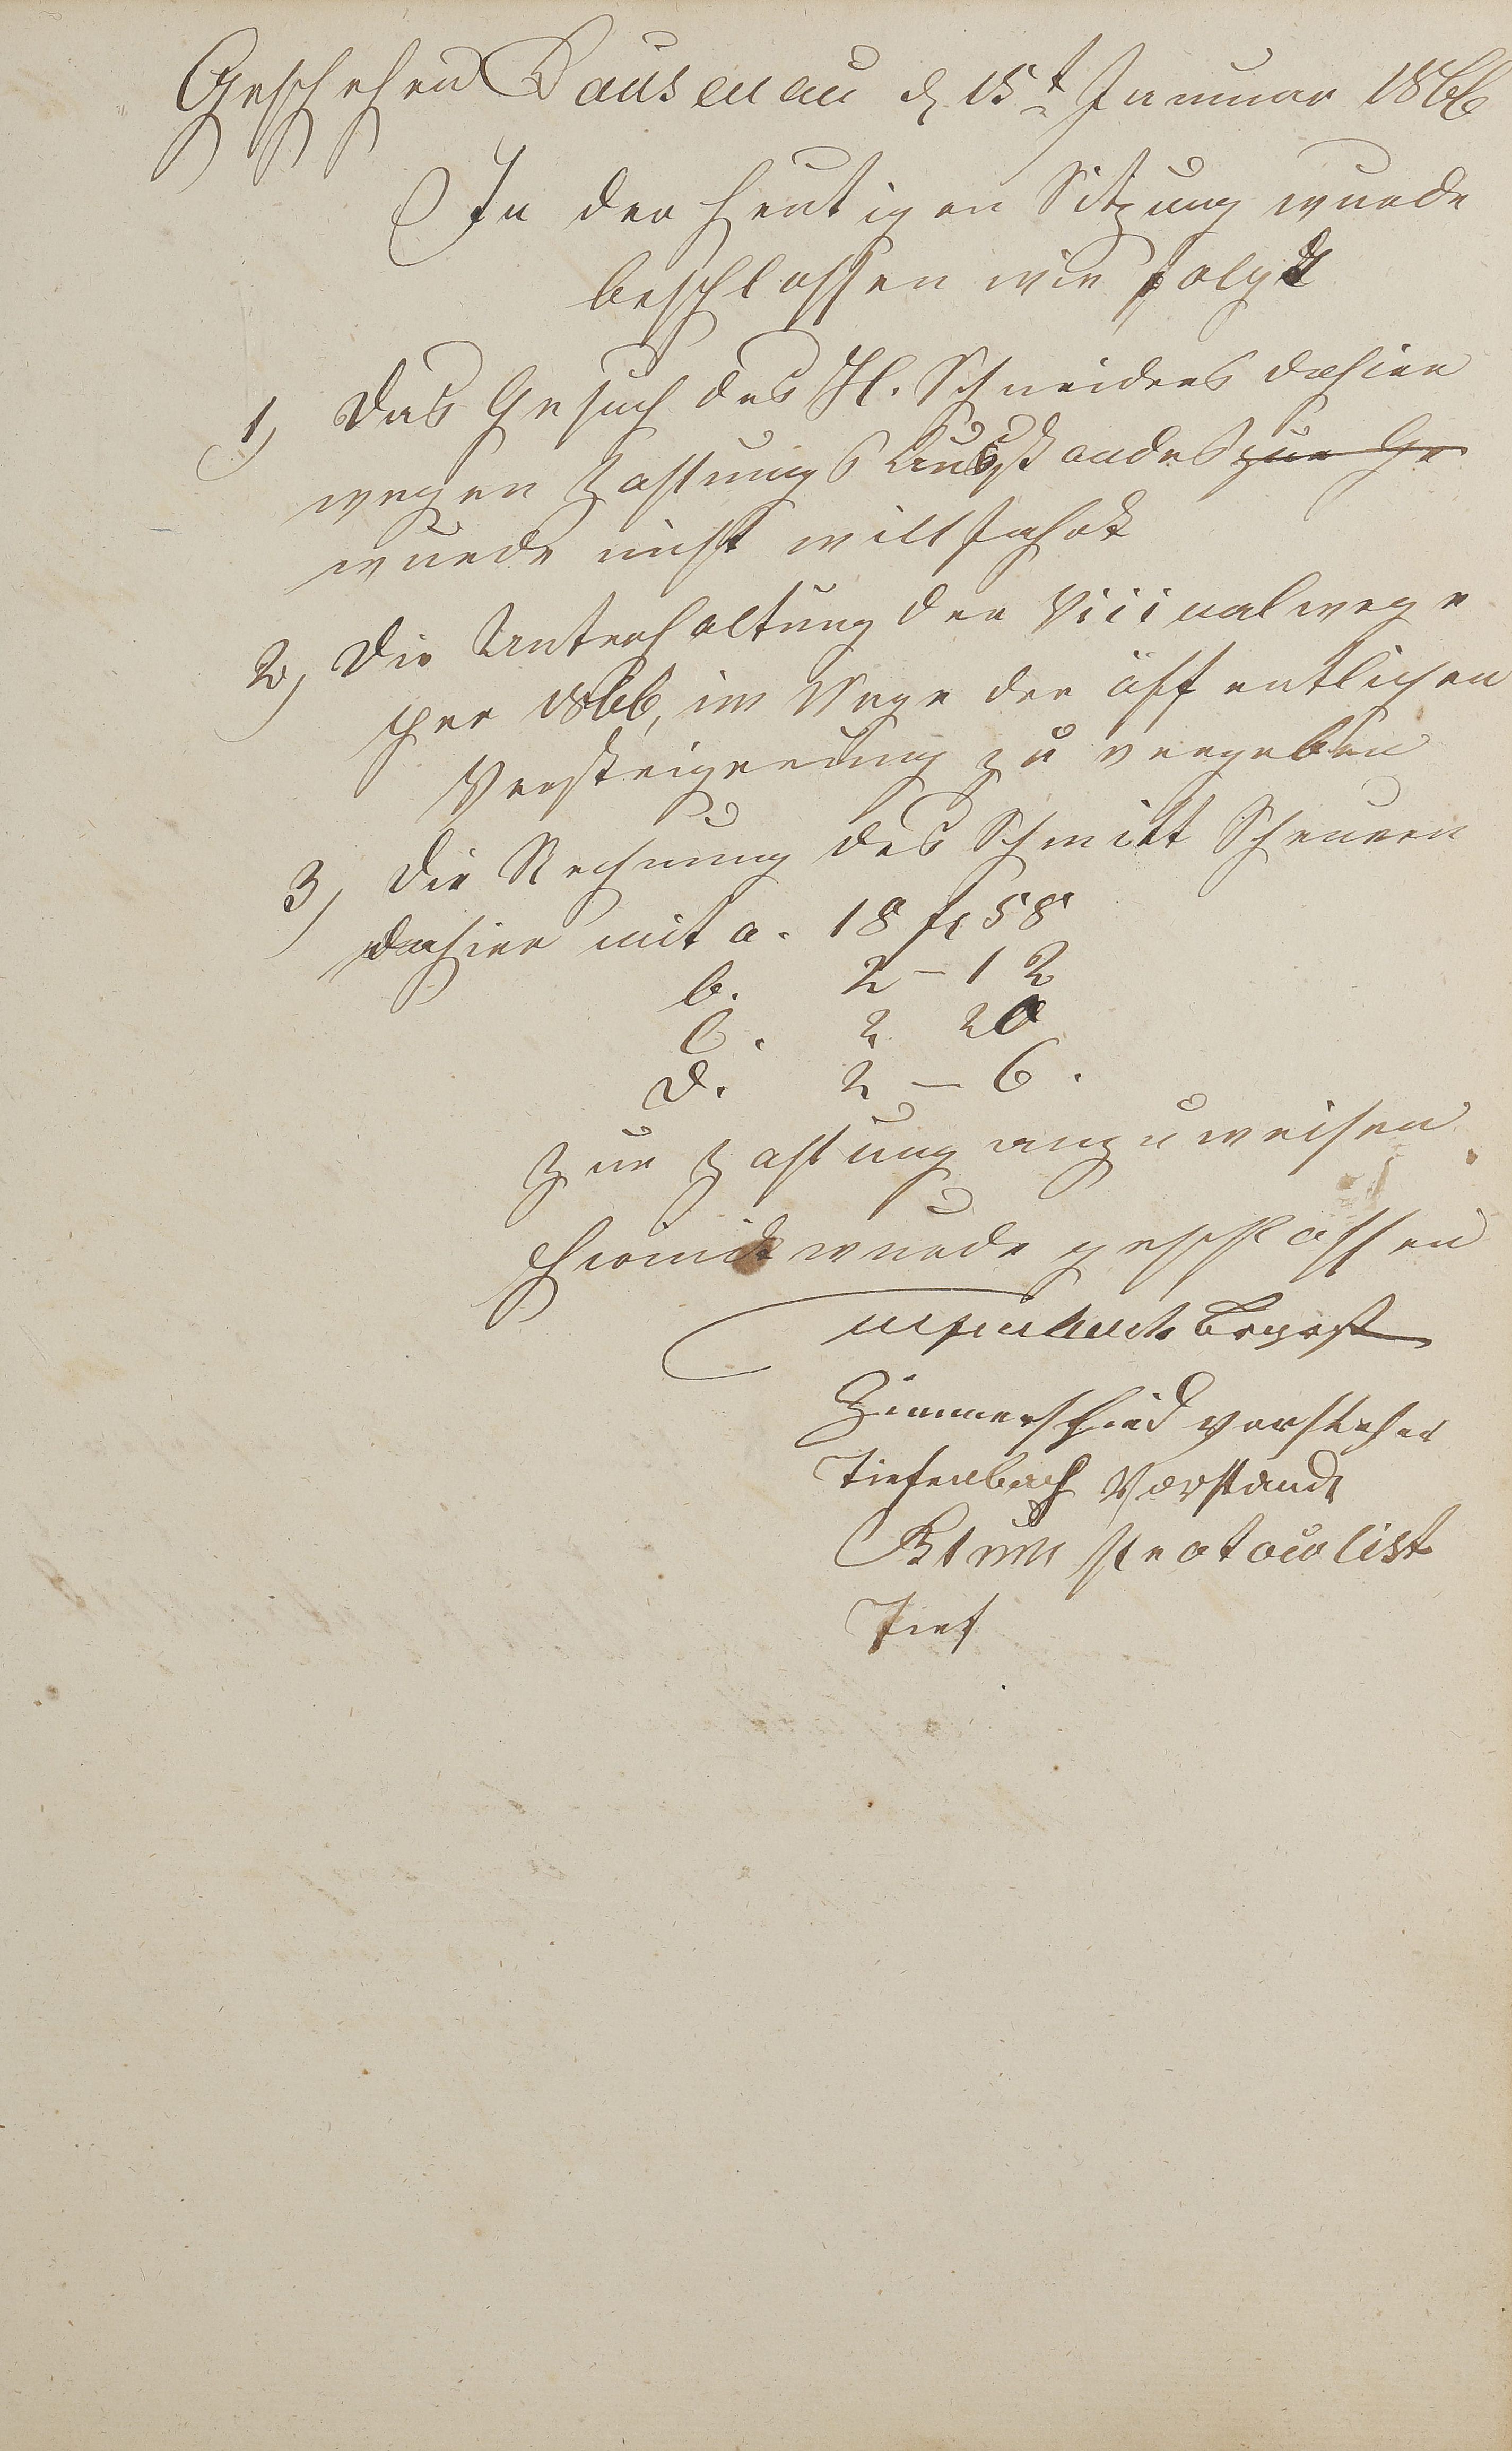 Geschehen Dausenau d 15t Januar 1866
In der heutigen Sitzung wurde
beschlossen wie folgt
1, Das Gesuch des Hl. Schneiders dahier
wegen Zahlungs Ausstandes zur Ge
wurde nicht willfahrt
2, Die Unterhaltung der Vicinalwege
per 1866, im Wege der öffentlichen
Versteigerung zu vergeben
3, Die Rechnung des Schmitt Scheuern
dahier mit a. 18 fl 58
b. 2 - 12
C. 2 20
d. 2 - 6.
zur Zahlung anzuweisen
hiermit wurde geschlossen
Zimmerschied Vorsteher
Tiefenbach Vorstand
Blum Protocolist
Tief